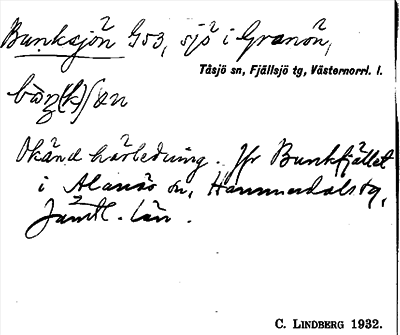 Bunksjön G53, sjö i Granön,
Tåsjö sn, Fjällsjö tg, Västernorrl. l.
Okänd härledning. Jfr Bunkfjället
i Alanäs sn, Hammerdals tg,
Jämtl. län.
C. LINDBERG 1932.